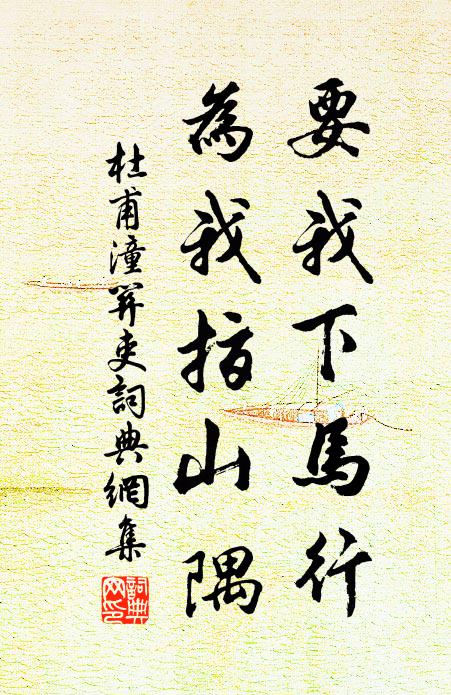 要我下馬行
為我指山隅
杜甫潼關吏詞典網集
詞典
网印